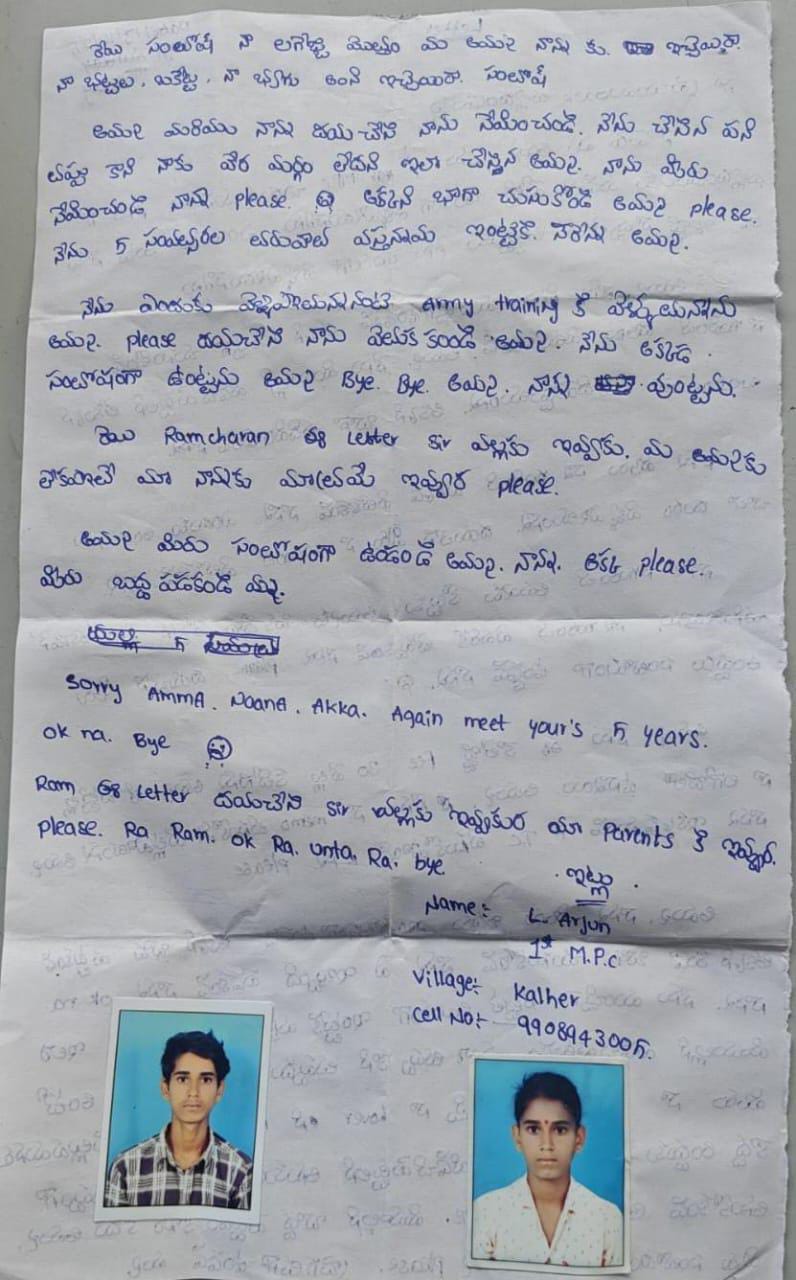 రేయ్ సంతోష్ నా లగేజ్జి మొత్తం మా అమ్మ నాన్న కు ఇచ్చెయిరా.
నా బట్టలు, బకెట్టు, నా బ్యాగు అంని ఇచ్చెయిరా. సంతోష్
అమ్మ మరియు నాన్న దయచేసి నాను క్షేమించండి. నేను చేసిన పని
తప్పు కాని నాకు వేరె మర్గం లేదని ఇలా చేస్తిన అమ్మ. నాను మీరు
క్షేమించండి నాన్న please అక్కని బాగా చుసుకోండి అమ్మ please.
నేను 5 సంవత్సరాల తరువాత వస్తనామ ఇంట్టికి. సారీన అమ్మ.
నేను ఎందుకు వెళ్ళిపోయినానంటే Army training కి వెళ్ళుతున్నాను
అమ్మ. please దయచేసి నాను వెతుక కండి అమ్మ. నేను అక్కడ
సంతోషంగా ఉంట్టును అమ్మ Bye. Bye. అమ్మ. నాన్న వుంట్టను.
రేయి Ramcharan ఈ Letter Sir వల్లకు ఇవ్వకు. మ అమ్మకు
లేకపోతే మా నానకు మాత్రమే ఇవ్వర please.
అమ్మ మిరు సంతోషంగా ఉండండి అమ్మ. నాన్న. అక్క please.
మీరు బద్ద పడకండి
Sorry Amma. Naana. Akka. Again meet your's 5 years.
ok na. Bye
Ram ఈ Letter దయచేసి Sir వల్లకు ఇవ్వకుర మా Parents కి ఇవ్వర.
please. Ra Ram. ok Ra. unta. Ra. bye
ఇట్లు
Name:- L. Arjun
1st M.P.C
Village:- Kalher
Cell No:- 9908943005.